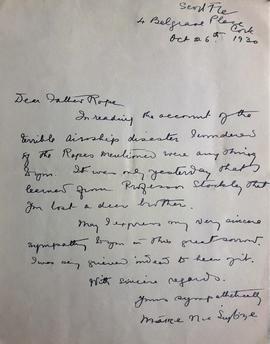 Scoil Íte
4 Belgrave Place
Cork
Oct 26th 1930
Dear Father Rope
In reading the account of the
terrible airships disaster I wondered
if the Ropes mentioned were any thing
to you. It was only yesterday that I
learned from Professor Stockley that
you lost a dear brother.
May I express my very sincere
sympathy to you in this great sorrow.
I was very grieved indeed to hear of it.
With sincere regards.
Yours sympathetically
Máire Nic Suibne